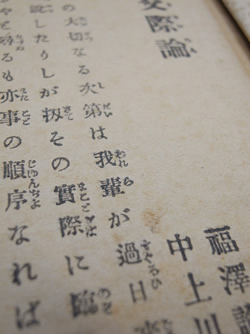 交際論
福澤
中上川
の大切なる次第は我輩が過日
説したりしが扨その實際に臨
を尋るも亦事の順序なれば